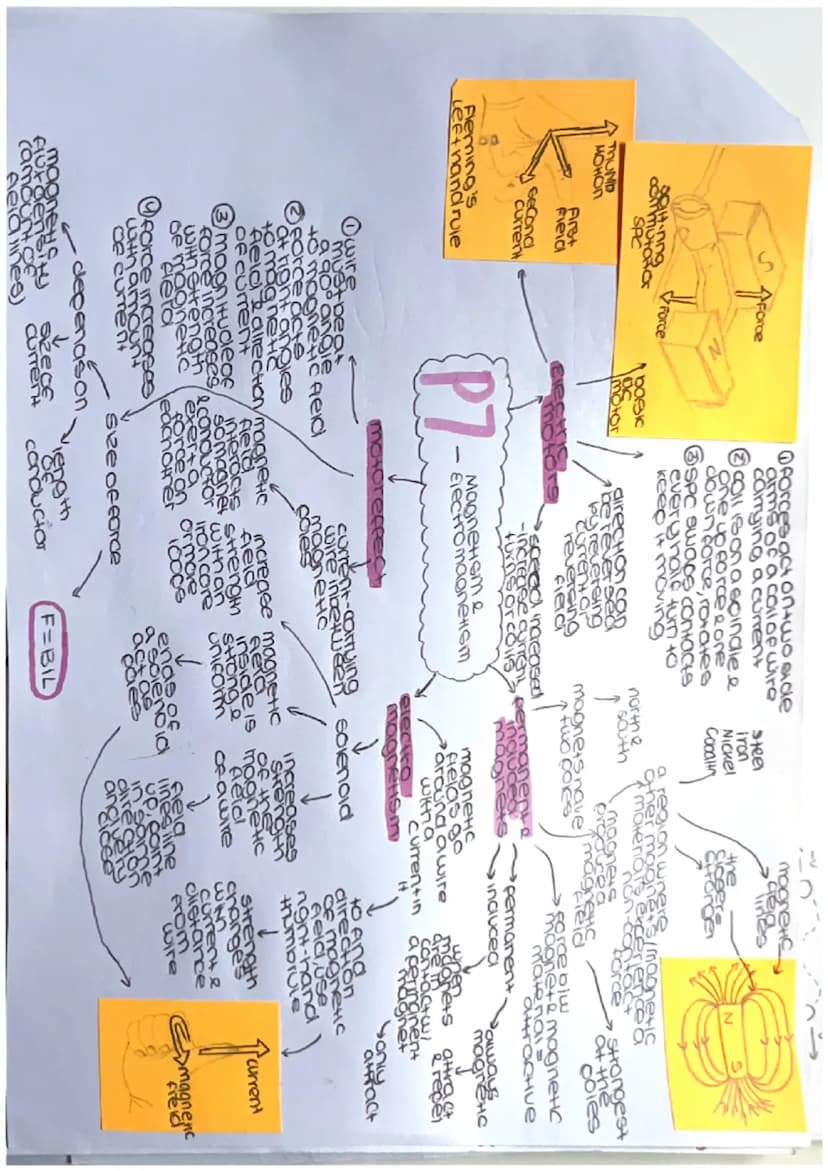 P7 - Magnetism &
Electromagnetism
electric
motors
basic
DC
motor
S
N
Force
Force
split-ring
commutator
SRC
Thumb
Motion
First
Field
Second
Current
Fleming's
left hand rule
① Forces act on two side
arms of a coil of wire
carrying a current
② coil is on a spindle &
one up force & one
down force, rotates
③ SRC swaps contacts
every half turn to
keep it moving
direction can
be reversed
by reversing
current or
reversing
field
speed increased
- increase current,
turns or coils
permanent &
induced
magnets
magnets have
two poles
north &
south
magnets
produce
magnetic
field
a region where
other magnets/magnetic
materials experience a
non-contact
force
steel
Iron
Nickel
Cobalt
magnetic
field
lines
the
closer =
stronger
N
S
strongest
at the
poles
force b/w
magnet & magnetic
material =
attractive
permanent
always
magnetic
attract
& repel
induced
when
magnets
are in
contact w/
a permanent
magnet
only
attract
electro
magnetism
magnetic
fields go
around a wire
with a
current in
it
to find
direction
of magnetic
field use
right-hand
thumb rule
current
magnetic
field
strength
changes
with
current &
distance
from
wire
solenoid
increases
strength
of the
magnetic
field
of a wire
field
lines line
up & point
in same
direction
magnetic
field
inside is
strong &
uniform
ends of
a solenoid
act as
poles
increase
field
strength
with an
iron core
or more
loops
motor effect
current-carrying
wire in between
magnetic
poles
magnetic
field
interacts
so magnet
& conductor
exert a
force on
each other
① wire
must be at
a 90° angle
to magnetic field
② force acts
at right angles
to magnetic
field & direction
of current
③ magnitude of
force increases
with strength
of magnetic
field
④ force increases
with amount
of current
size of force
F = BIL
depends on
magnetic
flux density
(amount of
field lines)
size of
current
length
of
conductor